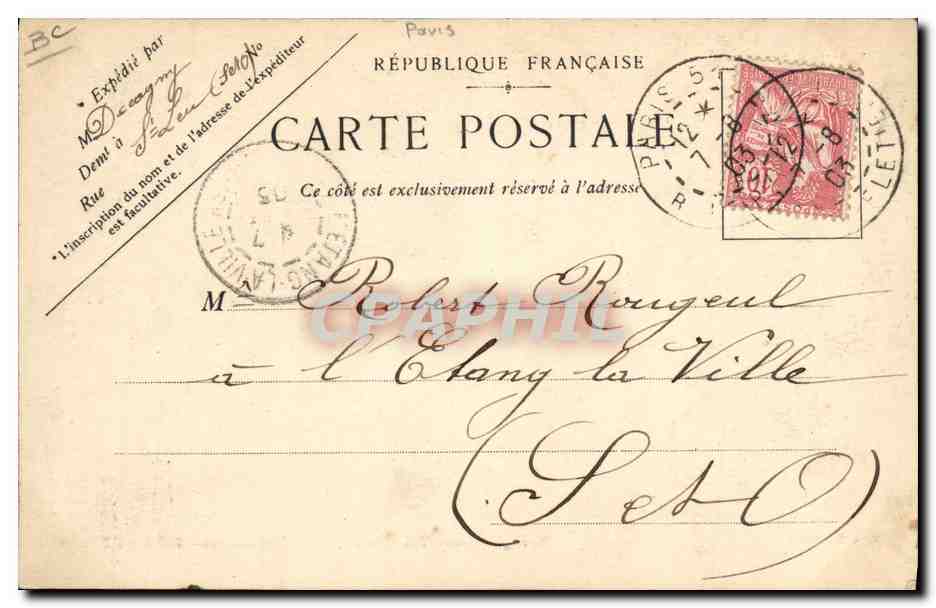 BC
Paris
* Expédié par
M Decagny
Demt à St Leu (S et O)
Rue No
* L'inscription du nom et de l'adresse de l'expéditeur
est facultative.
RÉPUBLIQUE FRANÇAISE
CARTE POSTALE
Ce côté est exclusivement réservé à l'adresse
PARIS-5
7 12
-8
03
12
-8
03
L'ETANG-LA-VILLE
4 7
03
Mr Robert Rougeul
à l'Etang la Ville
(S et O)
CPAPHIL